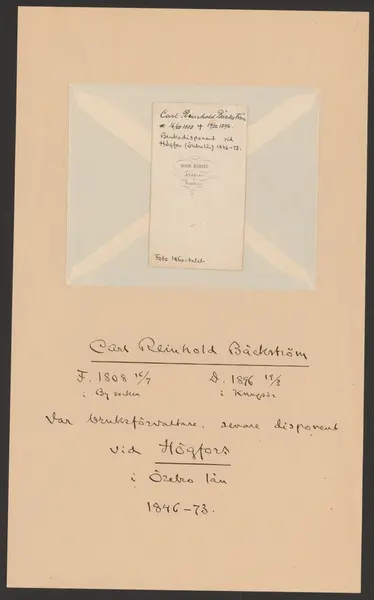 Carl Reinhold Bäckström
* 16/7 1808 † 19/2 1896.
Bruksdisponent vid
Högfors (Örebro l.) 1846-73.
Foto 1860-talet.
Carl Reinhold Bäckström
F. 1808 16/7 D. 1896 19/2
i By socken i Kungsör
Var bruksförvaltare, senare disponent
vid Högfors
i Örebro län
1846-73.